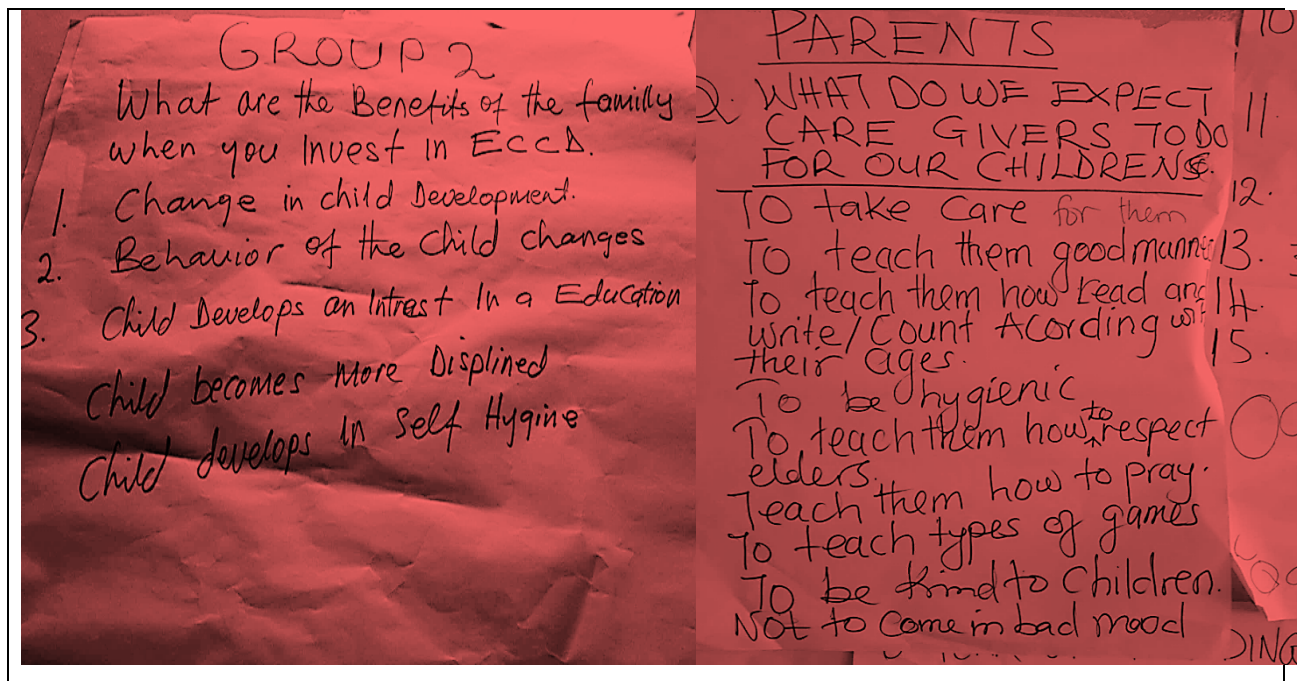 GROUP 2
What are the Benefits of the familly
when you Invest in ECCD.
1. Change in child Development.
2. Behavior of the Child changes
3. Child Develops an Intrest In a Education
Child becomes More Displined
Child develops in Self Hygine
PARENTS
2. WHAT DO WE EXPECT
CARE GIVERS TO DO
FOR OUR CHILDRENS.
TO take care for them
To teach them good manne
To teach them how read and
write/Count Acording with
their ages.
To be hygienic
To teach them how to respect
elders.
Teach them how to pray.
To teach types of games
To be kind to children.
Not to come in bad mood
10
11.
12.
13.
14.
15.
DING